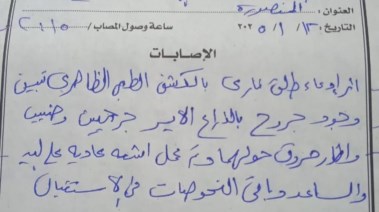 العنوان : المنصورة
التاريخ : ١٣ / ١ / ٢٠٢٥ ساعة وصول المصاب / ٢٠١٥
الإصابات
اثر ادعاء طلق نارى بالكشف الطبى الظاهرى تبين
وجود جروح بالذراع الايسر جرحين
واثار حروق حولهما وتم عمل اشعه عاديه على اليد
والساعد وباقى الفحوصات فى الاستقبال